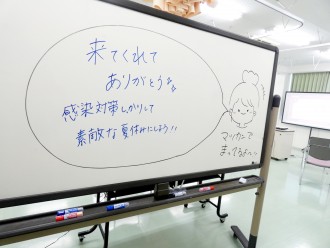 来てくれて
ありがとうな。
感染対策しっかりして
素敵な夏休みにしよう!!
マッカンで
まってるよ〜